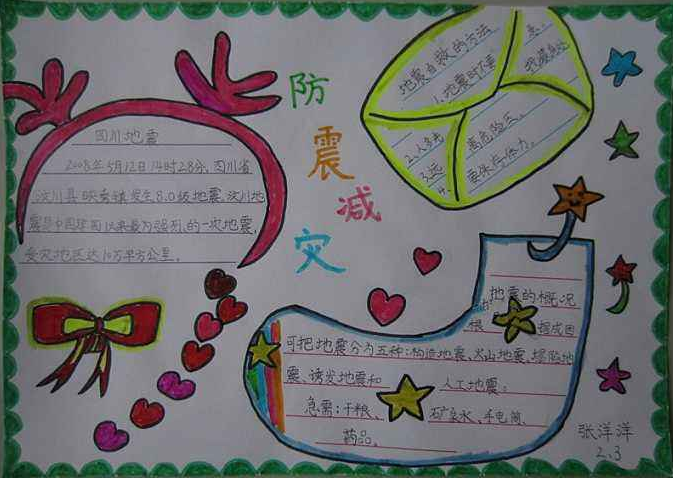 防
震
减
灾
四川地震
2008年5月12日14时28分,四川省
汶川县映秀镇发生8.0级地震,汶川地
震是中国建国以来最为强烈的一次地震,
受灾地区达10万平方公里。
地震自救的方法
1.地震时不
2.
离危险区。
3.远
要保持体力。
4.
地震的概况
根
成因
可把地震分为五种:构造地震、火山地震、塌陷地
震、诱发地震和 人工地震。
急需:干粮、 矿泉水、手电筒、
药品。
张洋洋
2.3